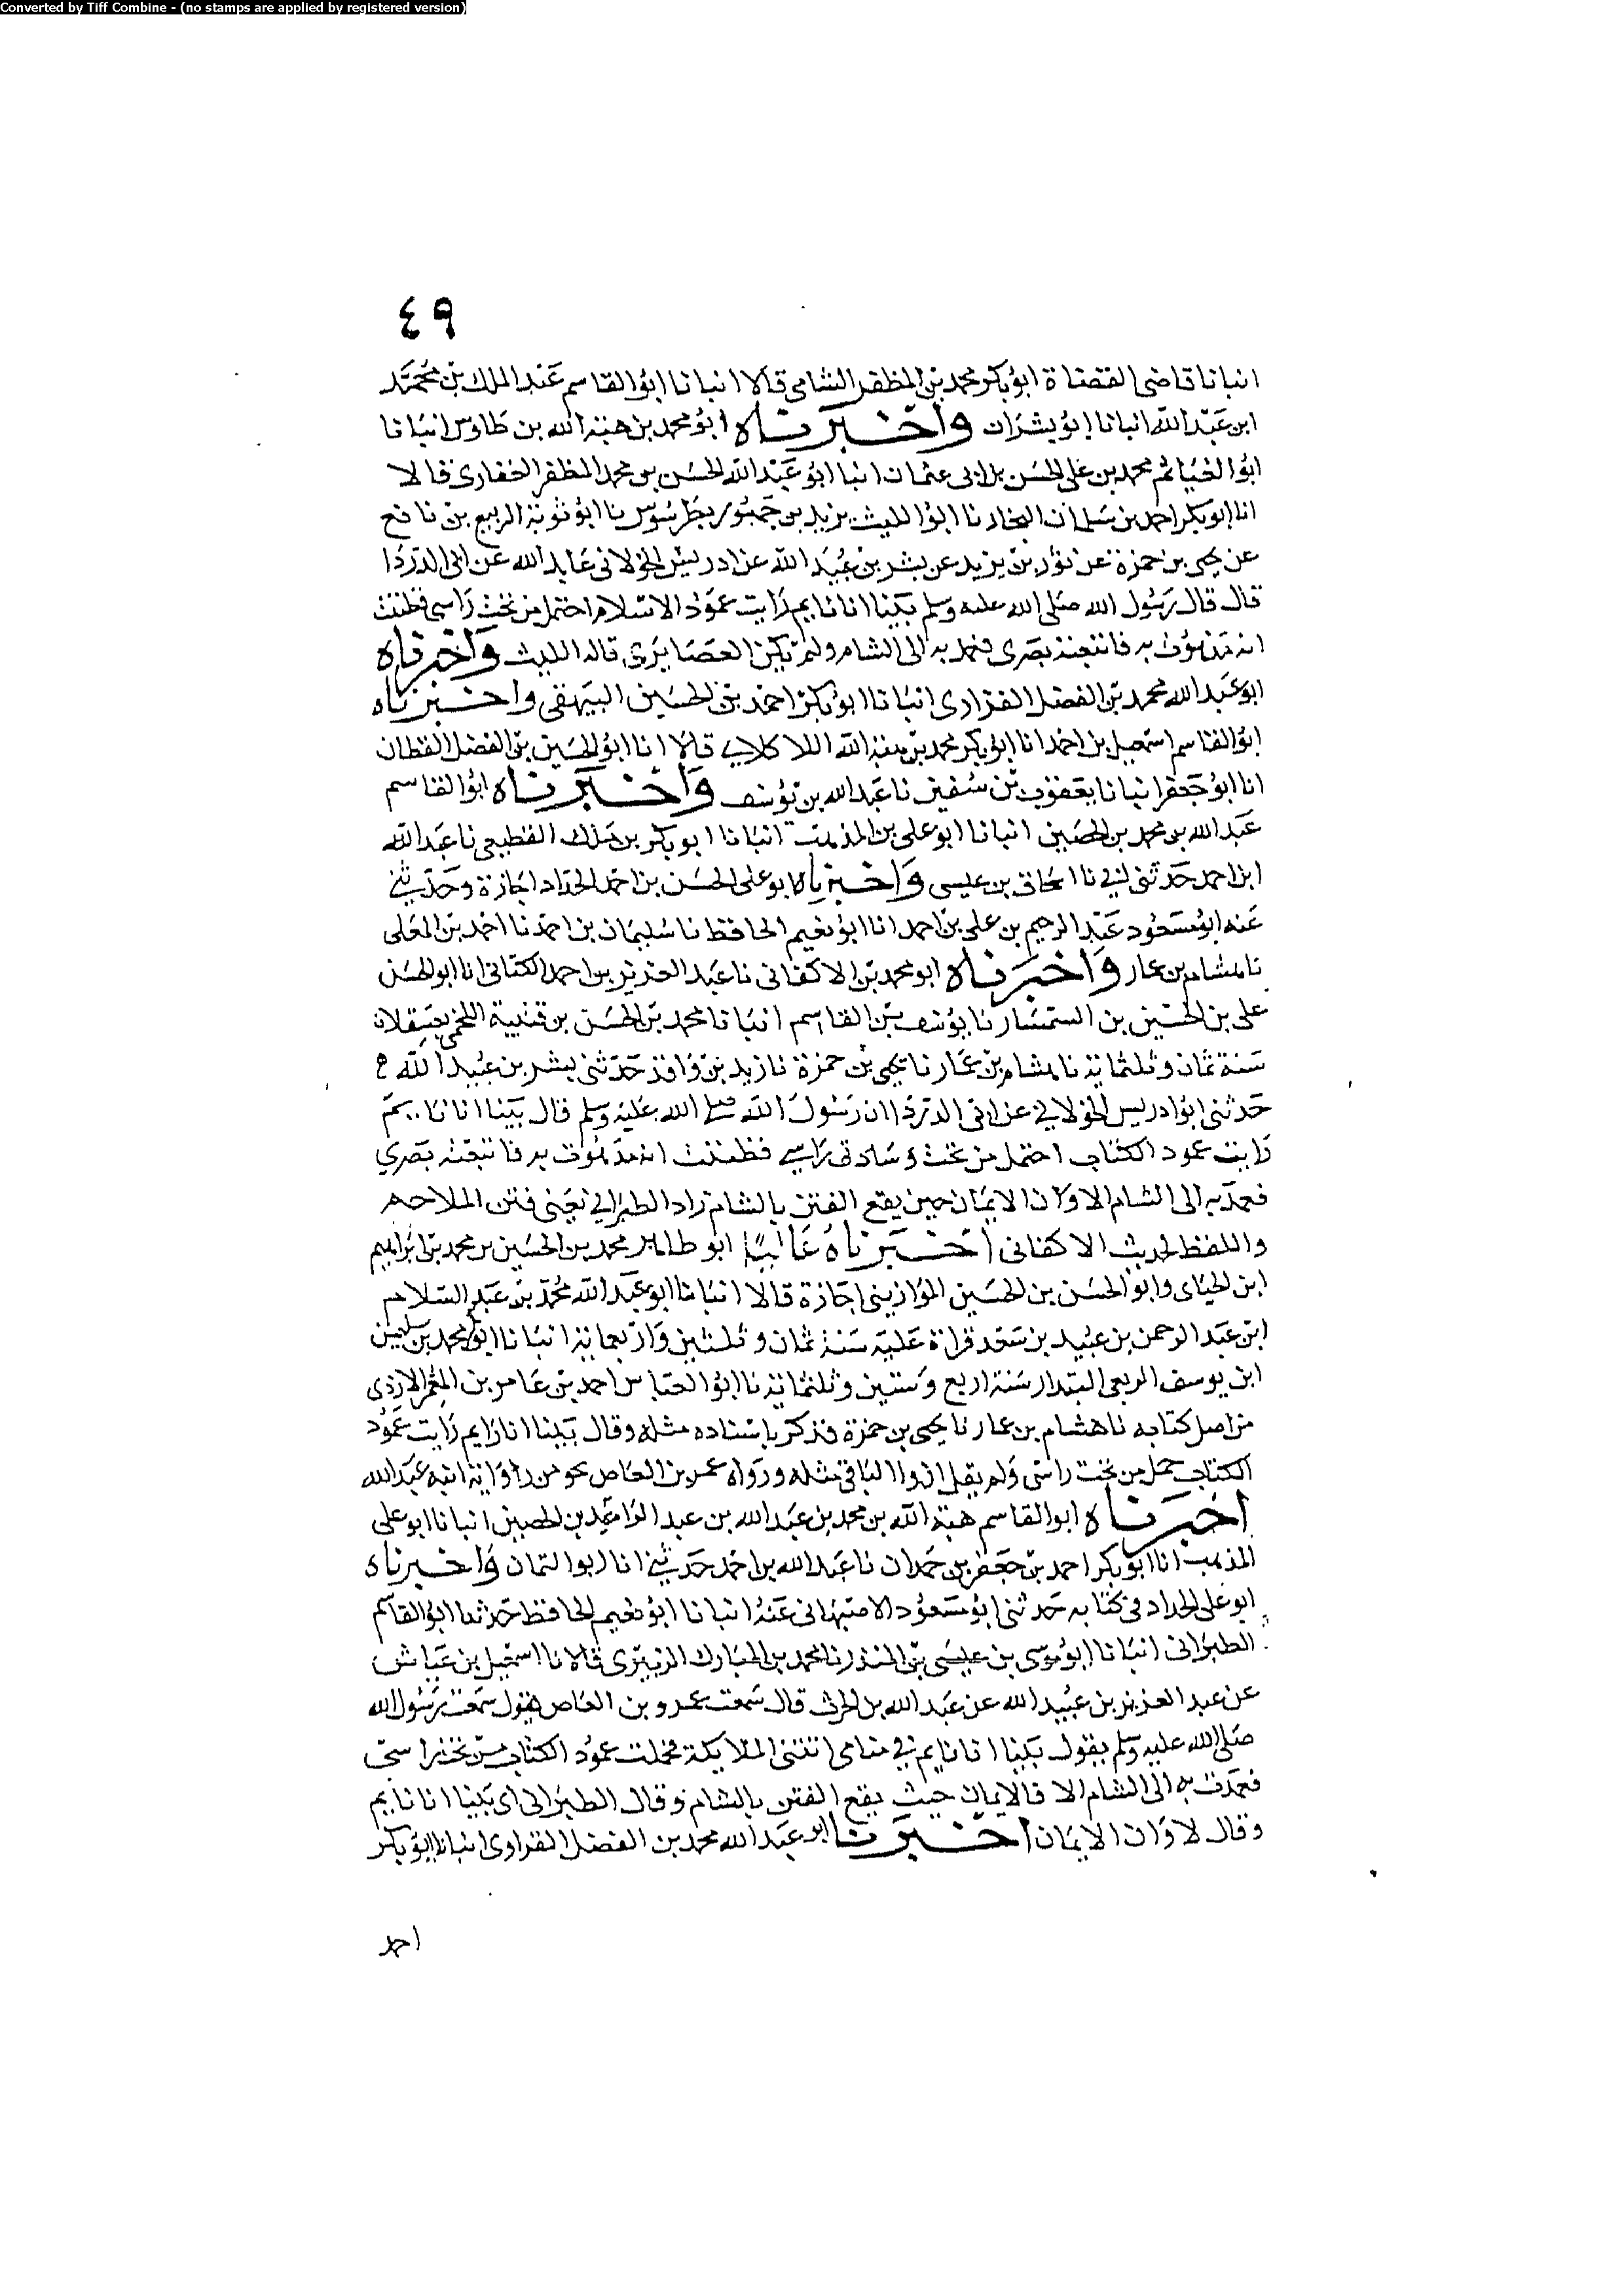 Converted by Tiff Combine - (no stamps are applied by registered version)
٤٩
انبانا قاضى القضاة ابو بكر محمد بن المظفر الشامى قالا انبانا ابو القاسم عبد الملك بن محمد
ابن عبد الله انبانا ابو بشران واخبرناه ابو محمد بن هبة الله بن طاوس انبانا
ابو الغنائم محمد بن على الحسن بن ابى عثمان انبا ابو عبد الله الحسن بن محمد المظفر الغفارى قالا
انا ابو بكر احمد بن سلمان النجاد نا ابو الليث يزيد بن جمهور بطرسوس نا ابو توبة الربيع بن نافع
عن يحيى بن حمزة عن ثور بن يزيد عن بشر بن عبيد الله عن ادريس الخولانى عايد الله عن ابى الدردا
قال قال رسول الله صلى الله عليه وسلم بينا انا نايم رايت عمود الاسلام احتمل من تحت راسى فظننت
انه مذهوب به فاتبعته بصرى فعمد به الى الشام ولم يكن العصا يرى قاله الليث واخبرناه
ابو عبد الله محمد بن الفضل الفزارى انبانا ابو بكر احمد بن الحسين البيهقى واخبرناه
ابو القاسم اسمعيل بن احمد انا ابو بكر محمد بن هبة الله اللالكاى قالا انا ابو الحسين بن الفضل القطان
انا ابو جعفر انبانا يعقوب بن سفين نا عبد الله بن يوسف واخبرناه ابو القاسم
عبد الله بن محمد بن الحصين انبانا ابو على بن المذهب انبانا ابو بكر بن ملك القطيعى نا عبد الله
ابن احمد حدثنى ابى نا اسحاق بن عيسى واخبرناه ابو على الحسن بن احمد الحداد اجازة وحدثنى
عنه ابو مسعود عبد الرحيم بن على بن احمد انا ابو نعيم الحافظ نا سليمان بن احمد نا احمد بن المعلى
نا هشام بن عمار واخبرناه ابو محمد بن الاكفانى نا عبد العزيز بن احمد الكتانى انا ابو الحسن
على بن الحسين بن السمسار نا يوسف بن القاسم انبانا محمد بن الحسن بن قتيبة اللخمى بعسقلان
سنة ثمان وثلثماية نا هشام بن عمار نا يحيى بن حمزة نا زيد بن واقد حدثنى بشر بن عبيد الله
حدثنى ابو ادريس الخولانى عن ابى الدردا ان رسول الله صلى الله عليه وسلم قال بينا انا نايم
رايت عمود الكتاب احتمل من تحت وسادتى راسى فظننت انه مذهوب به فاتبعته بصرى
فعمد به الى الشام الا وان الايمان حين يقع الفتن بالشام زاد الطبرانى يعنى فتن الملاحم
واللفظ لحديث الاكفانى اخبرناه عاليا ابو طاهر محمد بن الحسين بن محمد بن ابراهيم
ابن الحناى وابو الحسن بن الحسين الموازينى اجازة قالا انبانا ابو عبد الله محمد بن عبد السلام
ابن عبد الرحمن بن عبيد بن سعد قراة عليه سنة ثمان وثلثين واربعماية انبانا ابو محمد بن سليمن
ابن يوسف الربعى البندار سنة اربع وستين وثلثماية نا ابو العباس احمد بن عامر بن المعمر الازدى
من اصل كتابه نا هشام بن عمار نا يحيى بن حمزة فذكر باسناده مثله وقال بينا انا نايم رايت عمود
الكتاب حمل من تحت راسى ولم يقل ان والباقى مثله ورواه عمرو بن العاص نحو من رواية ابنه عبد الله
اخبرناه ابو القاسم هبة الله بن محمد بن عبد الله بن عبد الواحد بن الحصين انبانا ابو على
المذهب انا ابو بكر احمد بن جعفر بن حمدان نا عبد الله بن احمد حدثنى انا ابو اليمان واخبرناه
ابو على الحداد فى كتابه حدثنى ابو مسعود الاصبهانى عنه انبانا ابو نعيم الحافظ حدثنا ابو القاسم
الطبرانى انبانا ابو موسى بن عيسى بن المنذر نا محمد بن المبارك الزبيرى قالا نا اسمعيل بن عياش
عن عبد العزيز بن عبيد الله عن عبد الله بن الحرث قال سمعت عمرو بن العاص يقول سمعت رسول الله
صلى الله عليه وسلم يقول بينا انا نايم فى منامى اتتنى الملايكة فحملت عمود الكتاب من تحت راسى
فعمدت به الى الشام الا فالايمان حيث يقع الفتن بالشام وقال الطبرانى اى بينا انا نايم
وقال لا وان الايمان اخبرنا ابو عبد الله محمد بن الفضل الفراوى انبانا ابو بكر
احمد